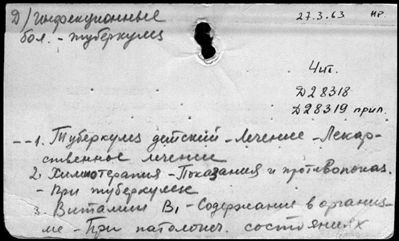 Д/инфекционные
бол. - туберкулез
27.3.63 НР.
Чит.
Д28318
Д28319 прил.
--1. Туберкулез детский - Лечение - Лекар-
ственное лечение
2. Химиотерапия - Показания и противопоказ.
- При туберкулезе
3. Витамин B₁ - Содержание в организ-
ме - При патологич. состояниях